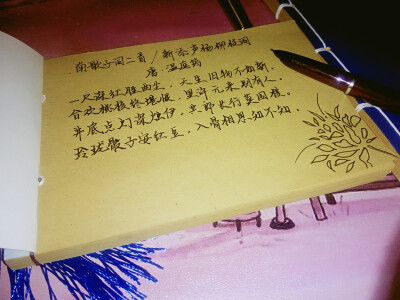 南歌子词二首/新添声杨柳枝词
唐:温庭筠
一尺深红胜曲尘,天生旧物不如新。
合欢桃核终堪恨,里许元来别有人。
井底点灯深烛伊,共郎长行莫围棋。
玲珑骰子安红豆,入骨相思知不知。